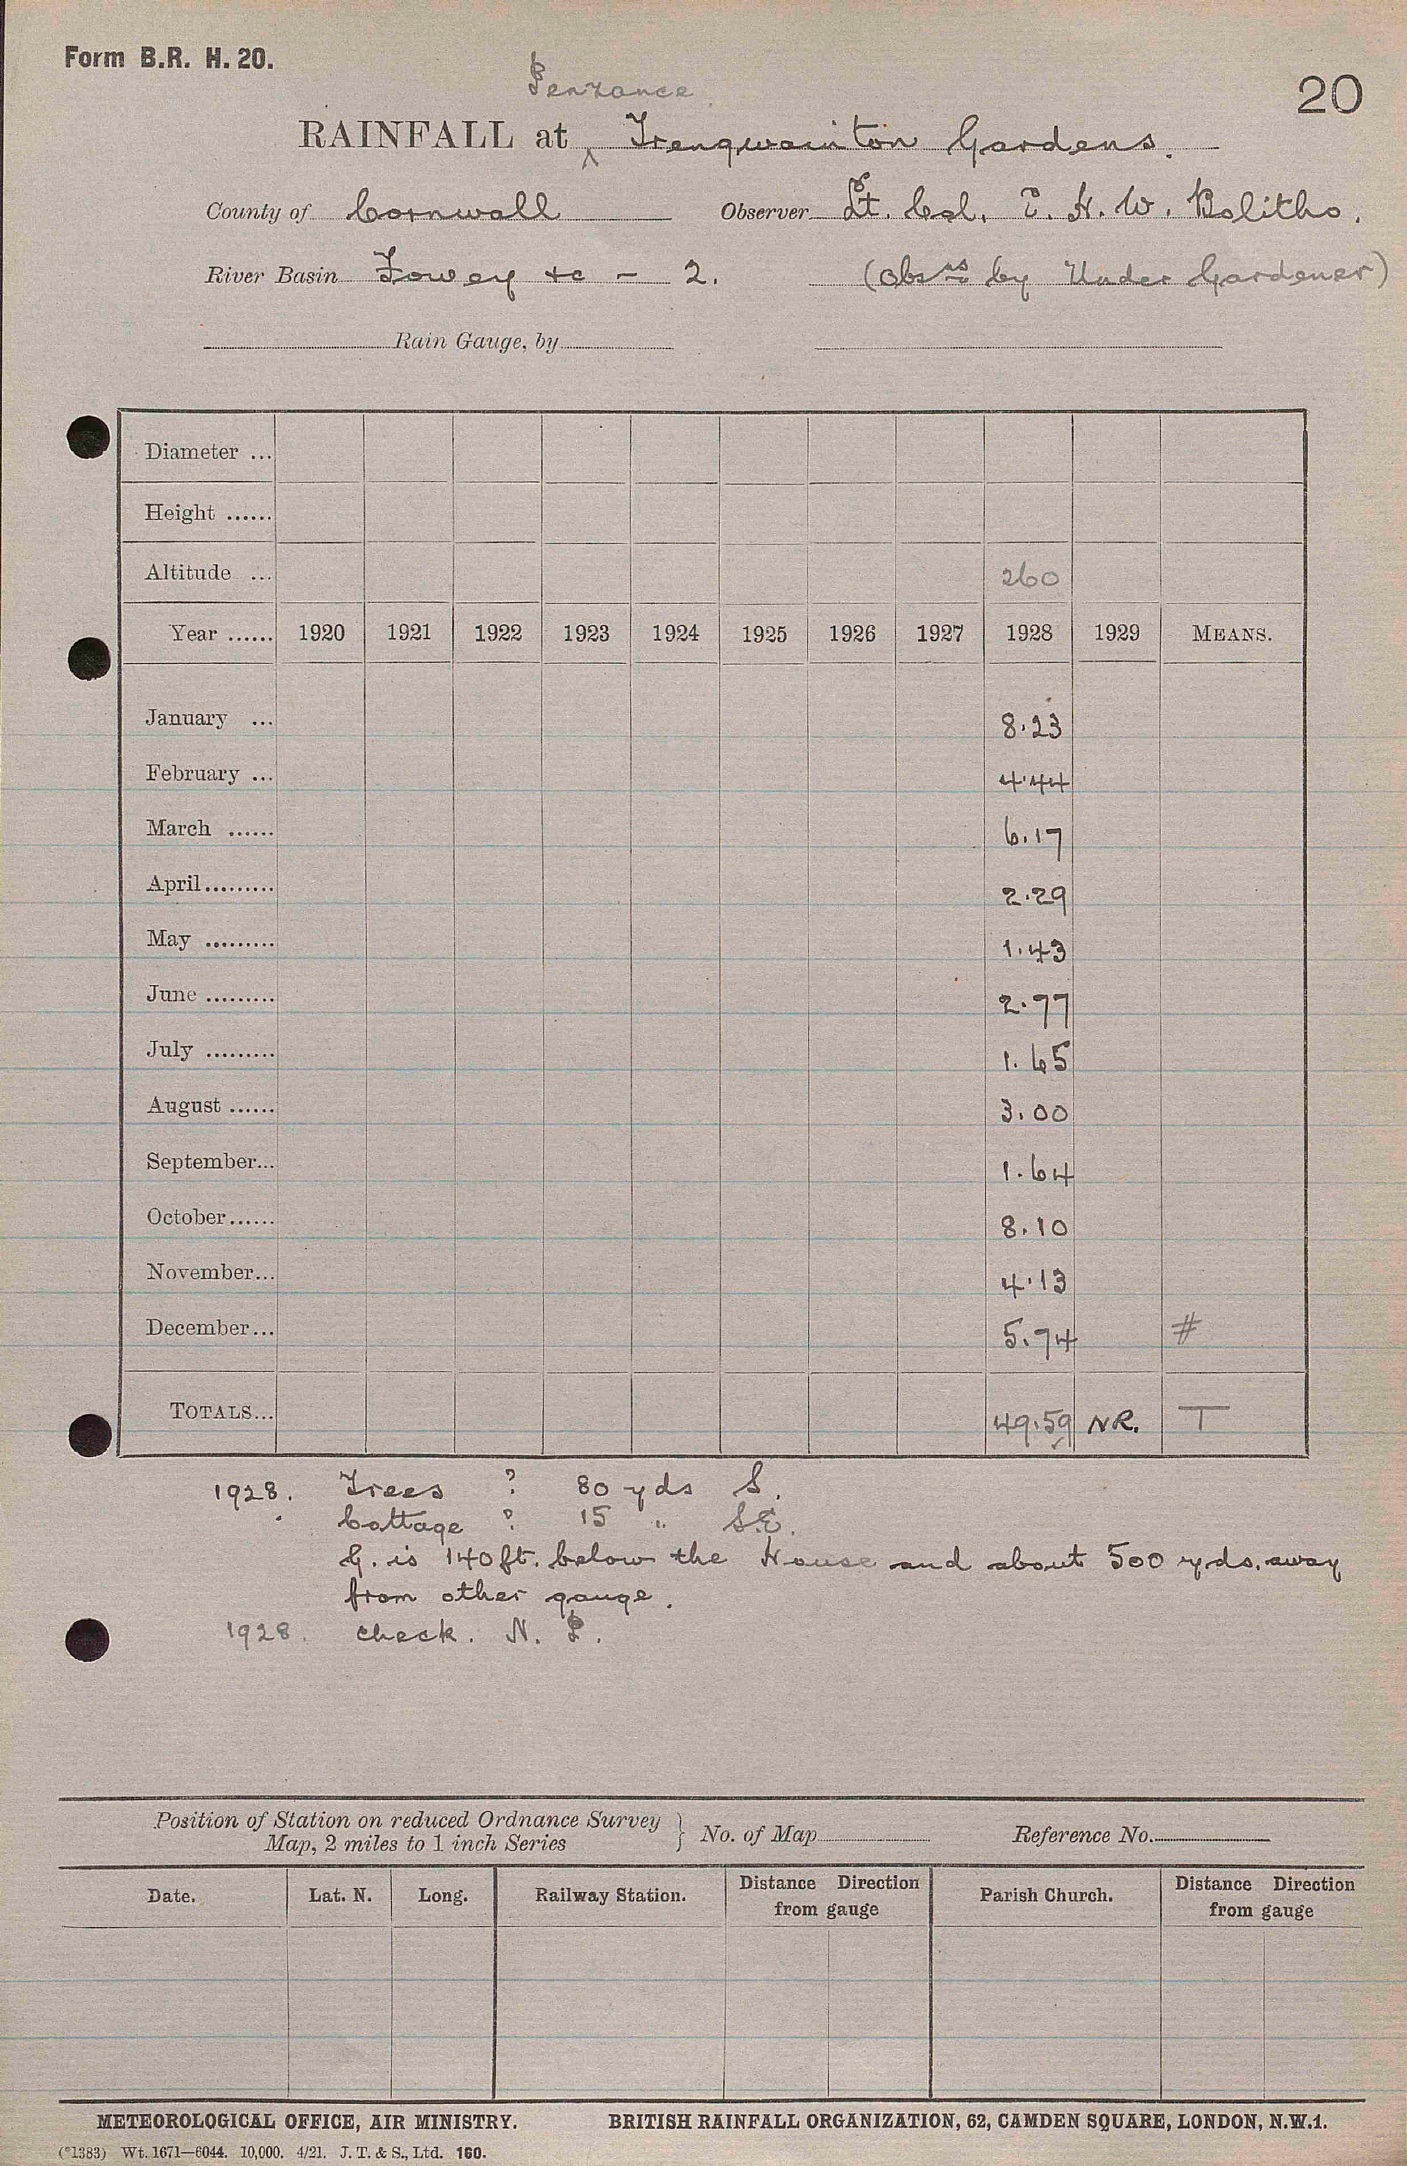 Form B.R. H. 20.
20
Penzance
RAINFALL at Trengwainton Gardens.
County of Cornwall Observer Lt. Col. E. H. W. Bolitho.
River Basin Fowey +c — 2. (Obsns by Under Gardener)
Rain Gauge, by
Diameter ...
Height ......
Altitude ... 260
Year ...... 1920 1921 1922 1923 1924 1925 1926 1927 1928 1929 MEANS.
January ... 8.23
February ... 4.44
March ...... 6.17
April......... 2.29
May ......... 1.43
June ......... 2.77
July ......... 1.65
August ...... 3.00
September... 1.64
October...... 8.10
November... 4.13
December... 5.74 #
TOTALS... 49.59 NR. T
1928. Trees ? 80 yds S.
Cottage ? 15 " S.E.
G. is 140 ft. below the House and about 500 yds. away
from other gauge.
1928. check. N. P.
Position of Station on reduced Ordnance Survey
Map, 2 miles to 1 inch Series } No. of Map Reference No.
Date. Lat. N. Long. Railway Station. Distance Direction from gauge Parish Church. Distance Direction from gauge
METEOROLOGICAL OFFICE, AIR MINISTRY. BRITISH RAINFALL ORGANIZATION, 62, CAMDEN SQUARE, LONDON, N.W.1.
(*1383) Wt. 1671—6044. 10,000. 4/21. J. T. & S., Ltd. 160.